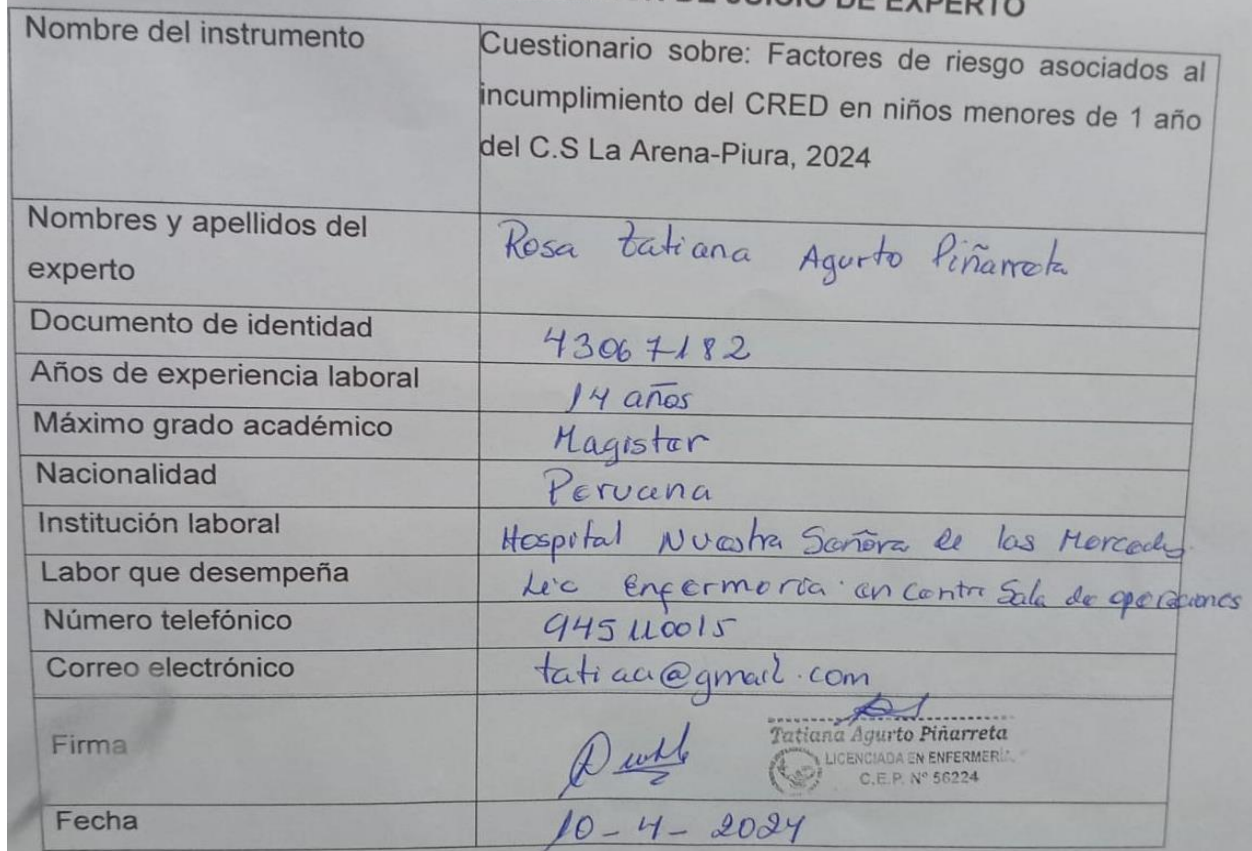 DE JUICIO DE EXPERTO
Nombre del instrumento
Cuestionario sobre: Factores de riesgo asociados al
incumplimiento del CRED en niños menores de 1 año
del C.S La Arena-Piura, 2024
Nombres y apellidos del
experto
Rosa tatiana Agurto Piñarreta
Documento de identidad
43067182
Años de experiencia laboral
14 años
Máximo grado académico
Magister
Nacionalidad
Peruana
Institución laboral
Hospital Nuestra Señora de las Mercedes
Labor que desempeña
Lic enfermería en centro Sala de operaciones
Número telefónico
945110015
Correo electrónico
tatiaa@gmail.com
Firma
Tatiana Agurto Piñarreta
LICENCIADA EN ENFERMERÍA
C.E.P. Nº 56224
Fecha
10-4-2024